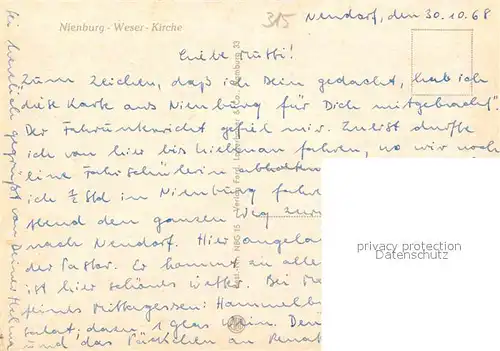 Nienburg - Weser - Kirche
315
Nendorf, den 30.10.68
Liebe Mutti!
Zum Zeichen, daß ich Dein gedacht, hab ich
diese Karte aus Nienburg für Dich mitgebracht".
Der Fahrunterricht gefiel mir. Zuerst durfte
ich von hier bis fahren, wo wir noch
eine Fahrschülerin abholten
ich ½ Std in Nienburg fahr
Abend den ganzen Weg zur
nach Nendorf. Hier angela
der Pastor. Er kommt zu alle
ist hier schönes Wetter. Bei
feines Mittagessen: Hammelb
Salat; dazu 1 Glas Wein. Den
und das Päckchen an Renat
Sei herzlich gegrüßt von Deiner
privacy protection
Datenschutz